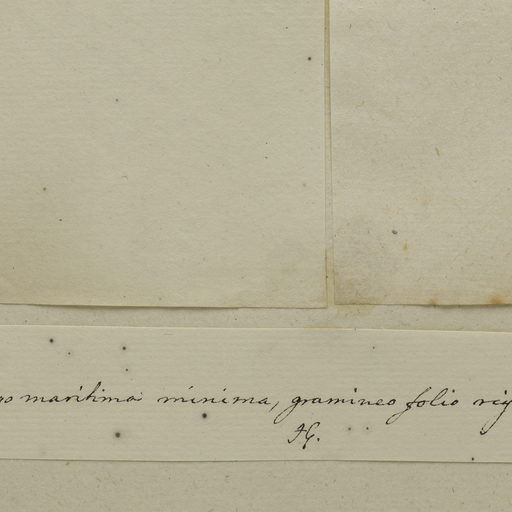 go maritima minima, gramineo folio rig
HG.